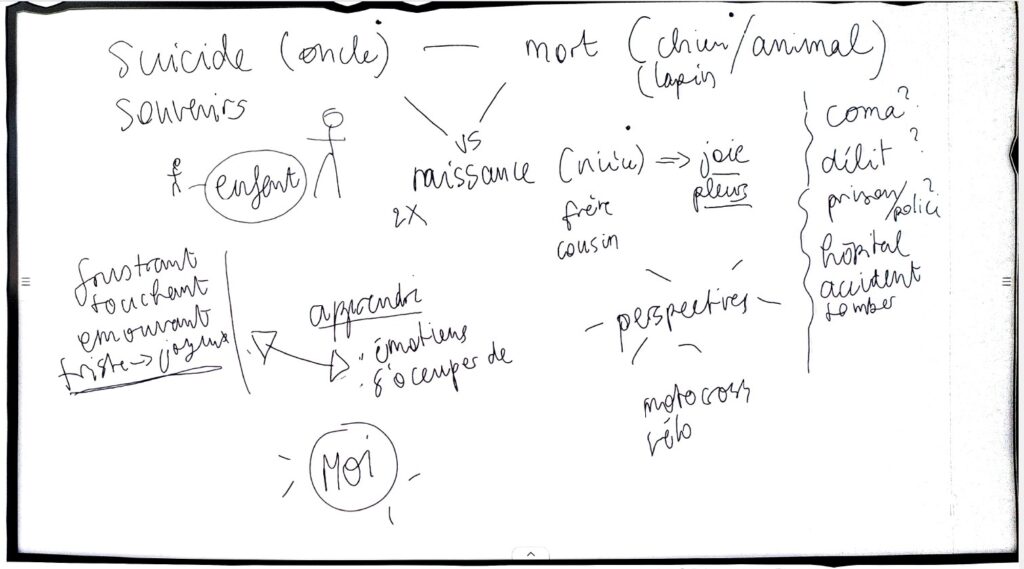 suicide (oncle) — mort (chien/animal)
(lapin
souvenirs
vs
enfant
naissance (nièce) => joie
pleurs
2X
frère
cousin
coma?
délit?
prison/police?
hôpital
accident
tomber
frustrant
touchant
emouvant
triste -> joyeux
apprendre
. émotions
. s'occuper de
- perspectives -
motocross
vélo
MOI